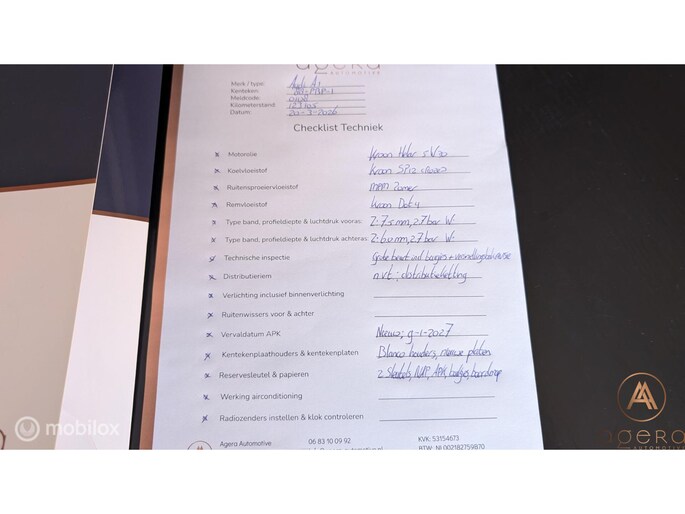 agera
AUTOMOTIVE
Merk / type: Audi A1
Kenteken:
Meldcode:
Kilometerstand:
Datum: 20-3-2026
Checklist Techniek
Motorolie Kroon Helar 5W30
Koelvloeistof Kroon SP12
Ruitensproeiervloeistof MPM Zomer
Remvloeistof Kroon Dot 4
Type band, profieldiepte & luchtdruk vooras: Z: 7.5 mm, 2.7 bar W:
Type band, profieldiepte & luchtdruk achteras: Z: 6.0 mm, 2.7 bar W:
Technische inspectie Grote beurt incl bougies +
Distributieriem n.v.t; distributieketting
Verlichting inclusief binnenverlichting
Ruitenwissers voor & achter
Vervaldatum APK Nieuw; 9-1-2027
Kentekenplaathouders & kentekenplaten Blanco houders, nieuwe platen
Reservesleutel & papieren 2 Sleutels, NAP, APK, boekjes,
Werking airconditioning
Radiozenders instellen & klok controleren
Agera Automotive 06 83 10 09 92 KVK: 53154673
BTW: NL002182759B70
mobilox
agera
AUTOMOTIVE